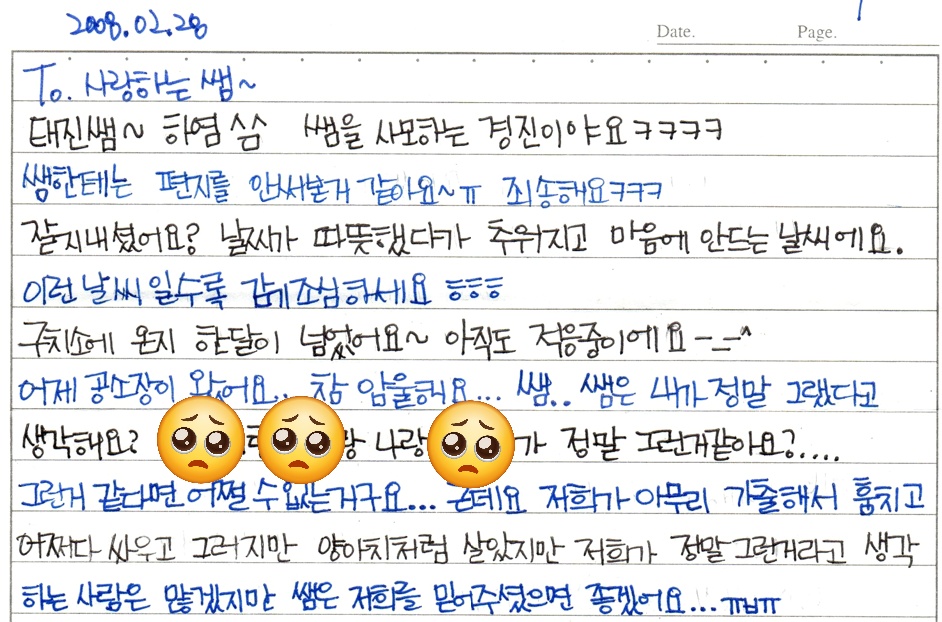 2008.02.28
Date. Page.
To. 사랑하는 쌤~
태진쌤~ 하염 ^^ 쌤을 사모하는 경진이야요ㅋㅋㅋㅋ
쌤한테는 편지를 안써본거 같아요~ㅠ 죄송해요ㅋㅋㅋ
잘지내셨어요? 날씨가 따뜻했다가 추워지고 마음에 안드는 날씨에요.
이런 날씨 일수록 감기조심하세요 ㅎㅎㅎ
구치소에 온지 한달이 넘었어요~ 아직도 적응중이에요 -_-^
어제 공소장이 왔어요.. 참 암울해요... 쌤.. 쌤은 내가 정말 그랬다고
생각해요? 랑 나랑 가 정말 그런거같아요?....
그런거 같다면 어쩔 수 없는거구요... 근데요 저희가 아무리 가출해서 훔치고
어쩌다 싸우고 그러지만 양아치처럼 살았지만 저희가 정말 그런거라고 생각
하는 사람은 많겠지만 쌤은 저희를 믿어주셨으면 좋겠어요...ㅠㅂㅠ